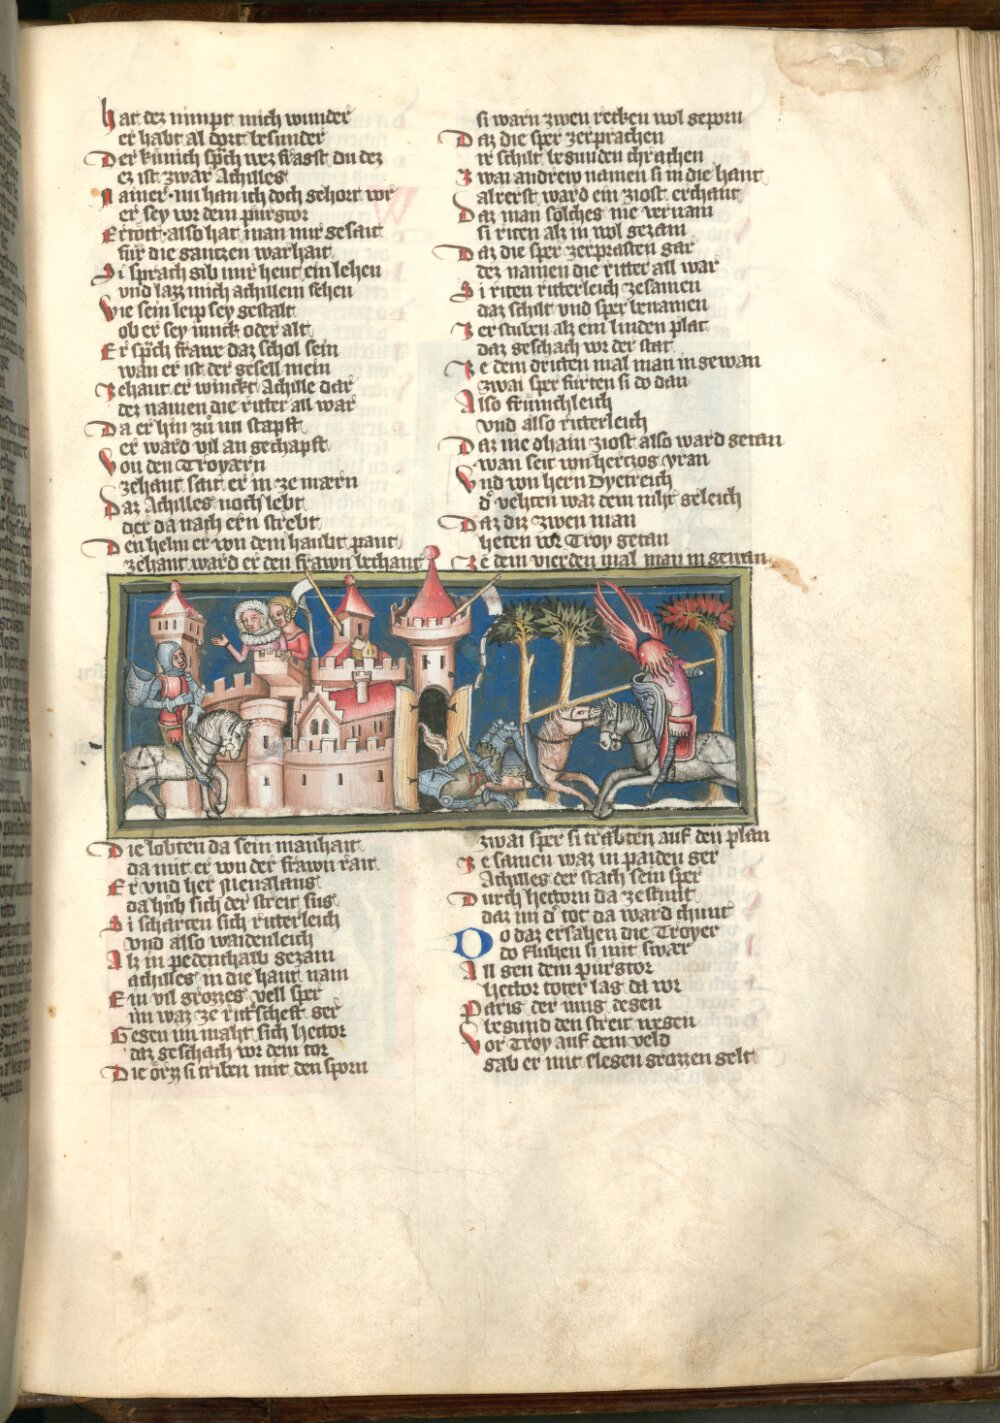 hat dez nimpt mich wunder
er habt al dort besunder
Der künich sp̄ch wez fragst du dez
ez ist zwar Achilles
Nainer · nu han ich doch gehort vor
er sey vor dem purgtor
Ertott · also hat man mir gesait
für die gantzen warhait
Si sprach gib mir heut ein lehen
vnd lazz mich achillem sehen
Wie sein leip sey gestalt
ob er sey iunck oder alt
Er sp̄ch frawe daz schol sein
wan er ist der gesell mein
Zehant er winckt Achille dar
dez namen die ritter all war
Da er hin zů im stapft
er ward vil an gechapft
Von den Troyærn
zehant seit er in ze mærn
Daz Achilles noch lebt
der da nach ern strebt
Den helm er von dem haubt pant
zehant ward er den frawn bechant
Die lobten da sein manhait
da mit er von der frawn rait
Er vnd her Menalaus
da hub sich der streit sus
Si scharten sich ritterleich
vnd also waidenleich
Alz in pedenthalb gezam
achilles in die hant nam
Ein vil grozzes vell sper
im waz ze rit schest ger
Gegen im maht sich hector
daz geschach vor dem tor
Die örz si triben mit den sporn
si warn zwen recken wol geporn
Daz die sper zerprachen
ir schilt begunden chrachen
Zwai andrew namen si in die hant
alrerst ward ein ziost erchant
Daz man solches nie vernam
si riten alz in wol gezam
Daz die sper zerprasten gar
dez namen die ritter all war
Si riten ritterleich zesamen
daz schilt vnd sper benamen
Zerstuben alz ein linden plat
daz geschach vor der stat
Ze dem dritten mal man in gewan
zwai sper fürten si do dan
Also frümchleich
vnd also ritterleich
Daz nie chain ziost also ward getan
wan seit von hertzog yran
Vnd von hern Dyetreich
d' vehten waz dem niht geleich
Daz diz zwen man
heten vor Troy getan
Ze dem vierden mal man in gewan
zwai sper si trabten auf den plan
Zesamen waz in paiden ger
Achilles der stach sein sper
Durch hectorn da zestunt
daz im d' tot da ward chunt
Do daz ersahen die Troyer
do fluhen si mit swær
All gen dem purgtor
hector toter lag da vor
Paris der iung degen
begund den streit wegen
Vor Troy auf dem veld
gab er mit slegen grozzen gelt